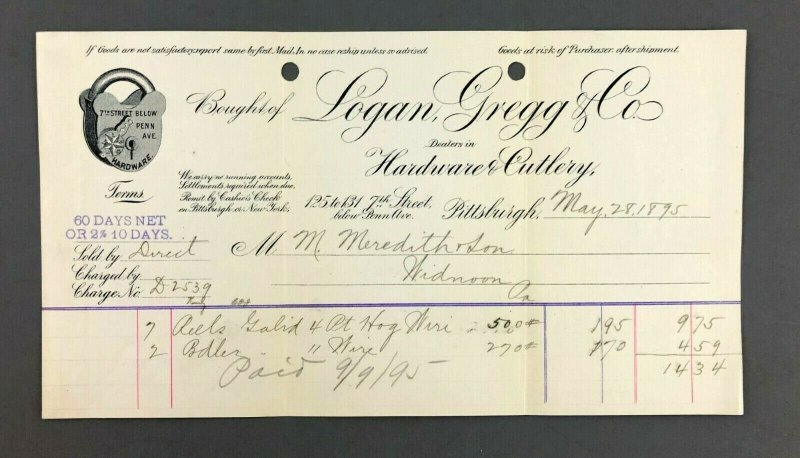 If Goods are not satisfactory, report same by first Mail. In no case reship unless so advised.
Goods at risk of Purchaser after shipment.
7TH STREET BELOW
PENN
AVE.
HARDWARE.
Bought of Logan, Gregg & Co
Dealers in
Hardware & Cutlery,
We carry no running accounts.
Settlements required when due.
Remit by Cashier's Check
on Pittsburgh or New York.
125 to 131 7th Street,
below Penn Ave.
Pittsburgh, May, 28, 1895
Terms
60 DAYS NET
OR 2% 10 DAYS.
Sold by Direct
Charged by
Charge No. D 2539
M M. Meredith & Son
Widnoon
Pa
7 Reels Galvd 4 Pt Hog Wire 500# 195 975
2 Bdles " " Wire 270# 170 459
1434
Paid 9/9/95